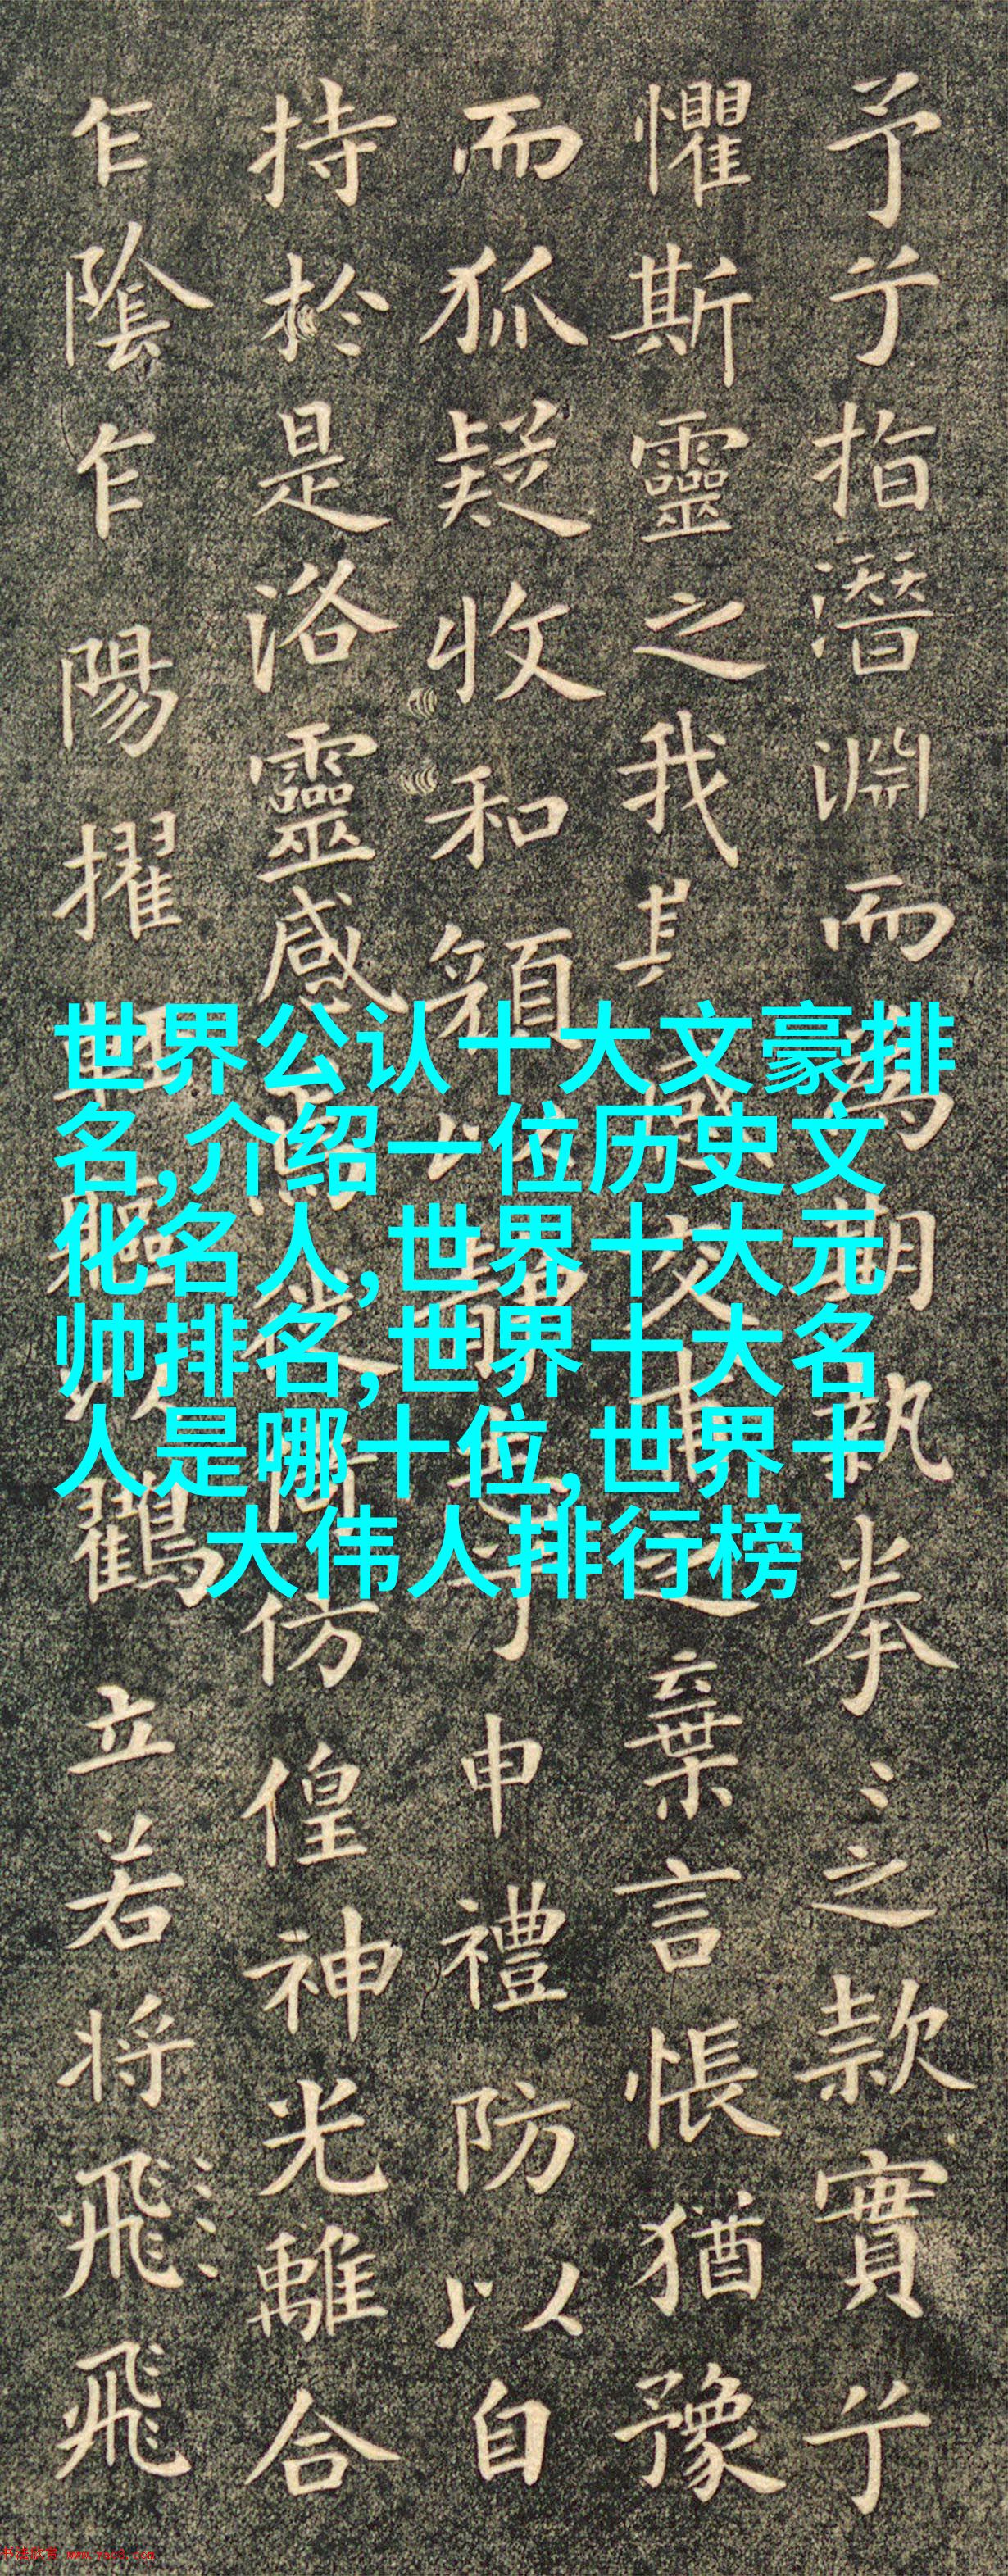 予兮指潛淵而為期執拳〻之款實兮
懼斯靈之我其感交甫之棄言悵猶豫
而狐疑收和顏以靜志兮申禮防以自
持於是洛靈感焉徙倚仿偟神光離合
乍陰乍陽擢輕軀以鶴立若將飛飛
世界公认十大文豪排
名,介绍一位历史文
化名人,世界十大元
帅排名,世界十大名
人是哪十位,世界十
大伟人排行榜